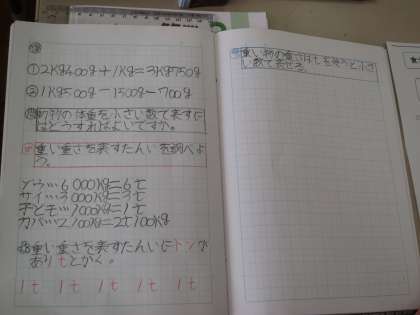 ①2kg400g+1kg=3kg750g
②1kg500g-1500g-700g
動物の体重を小さい数で表すに
はどうすればよいですか。
重い重さを表すたんいを調べよ
う。
ゾウ…6000kg=6t
サイ…3000kg=3t
子ども…1000kg=1t
カバ…2100kg=2t100kg
重い重さを表すたんいにトンが
ありtとかく。
1t 1t 1t 1t 1t
重い物の重さはtを使うと小さ
い数で表せる